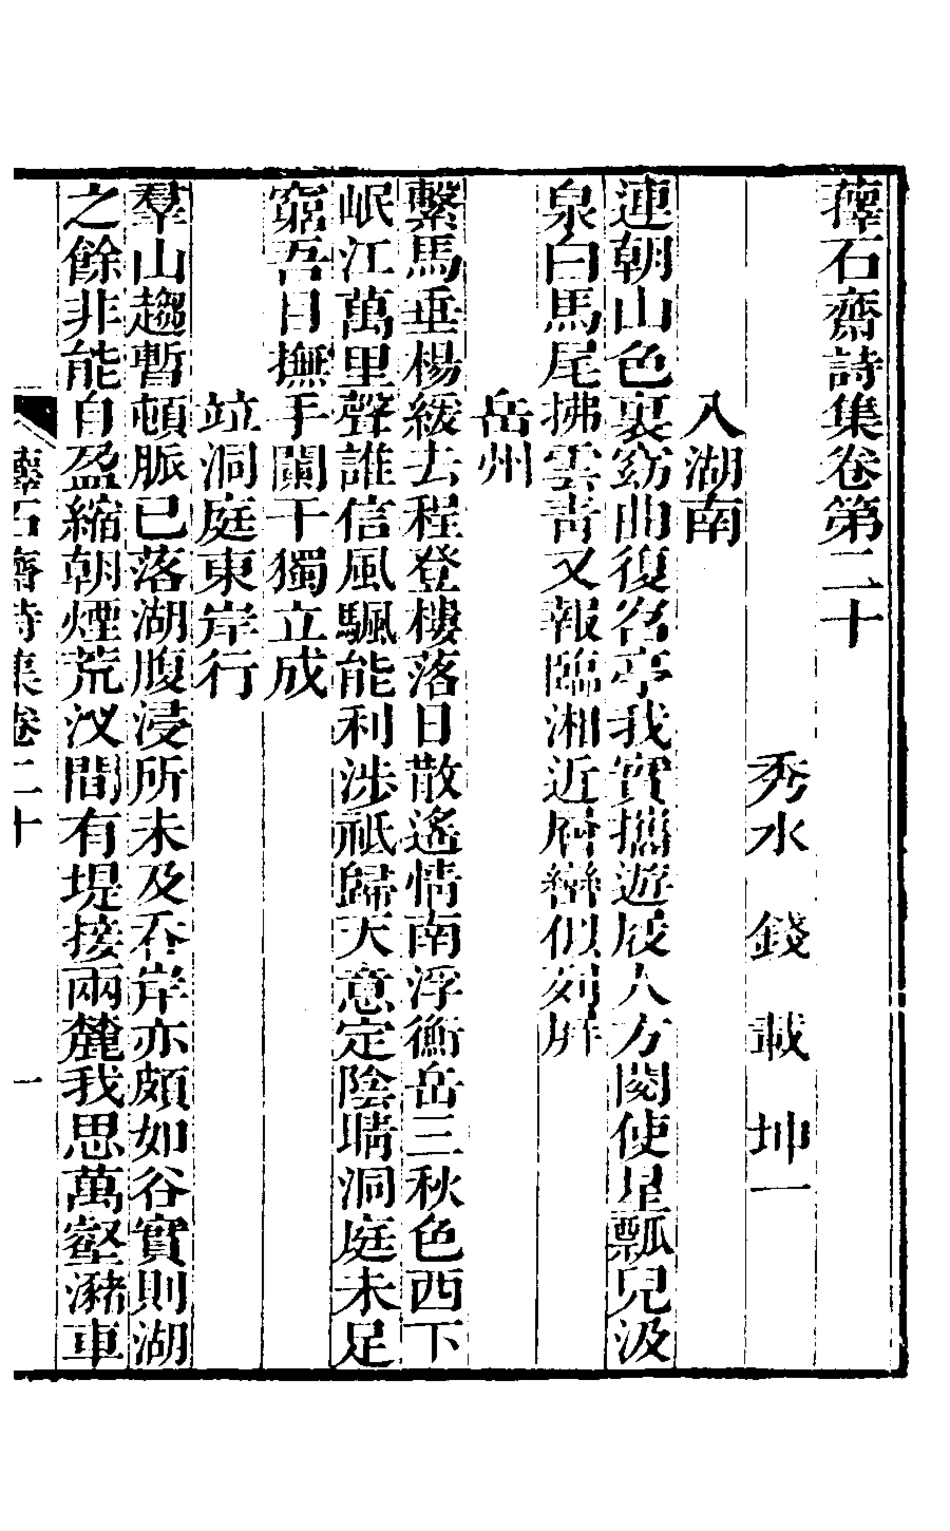 蘀石齋詩集卷第二十
秀水 錢 載 坤一
入湖南
連朝山色裏窈曲復名亭我實攜遊屐人方閱使星瓢兒汲
泉白馬尾拂雲靑又報臨湘近層巒似列屛
岳州
繫馬垂楊緩去程登樓落日散遙情南浮衡岳三秋色西下
岷江萬里聲誰信風颿能利涉祇歸天意定陰晴洞庭未足
窮吾目撫手闌干獨立成
竝洞庭東岸行
羣山趨暫頓脈已落湖腹浸所未及吞岸亦頗如谷實則湖
之餘非能自盈縮朝煙荒汊間有堤接兩麓我思萬壑瀦車
蘀石齋詩集卷二十 一